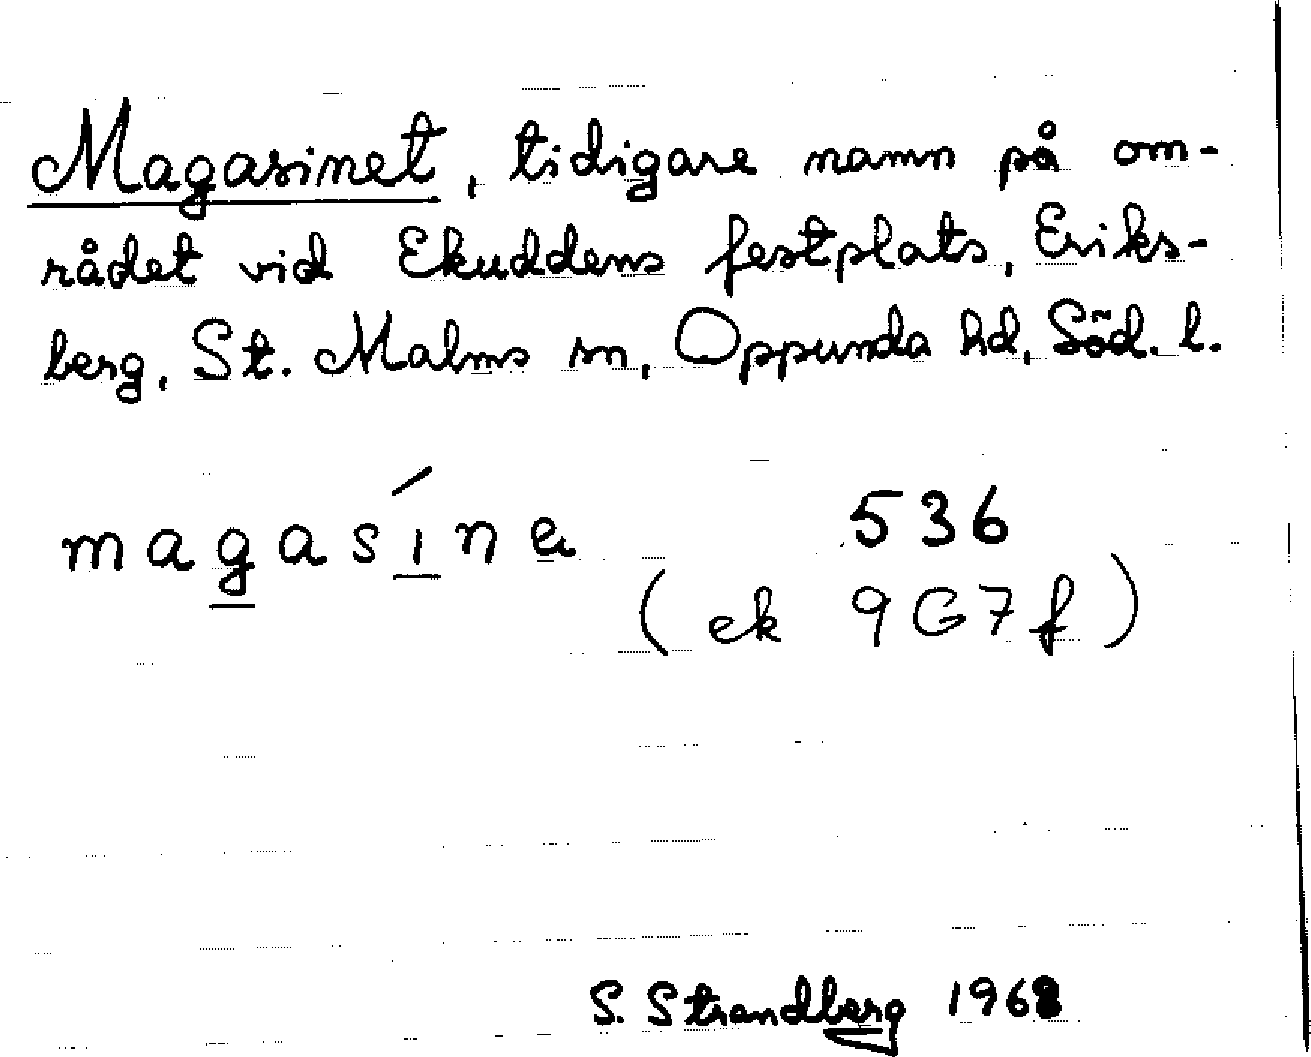 Magasinet, tidigare namn på om-
rådet vid Ekuddens festplats, Eriks-
berg, St. Malms sn, Oppunda hd, Söd. l.
magasíne 536
(ek 9G7f)
S. Strandberg 1968